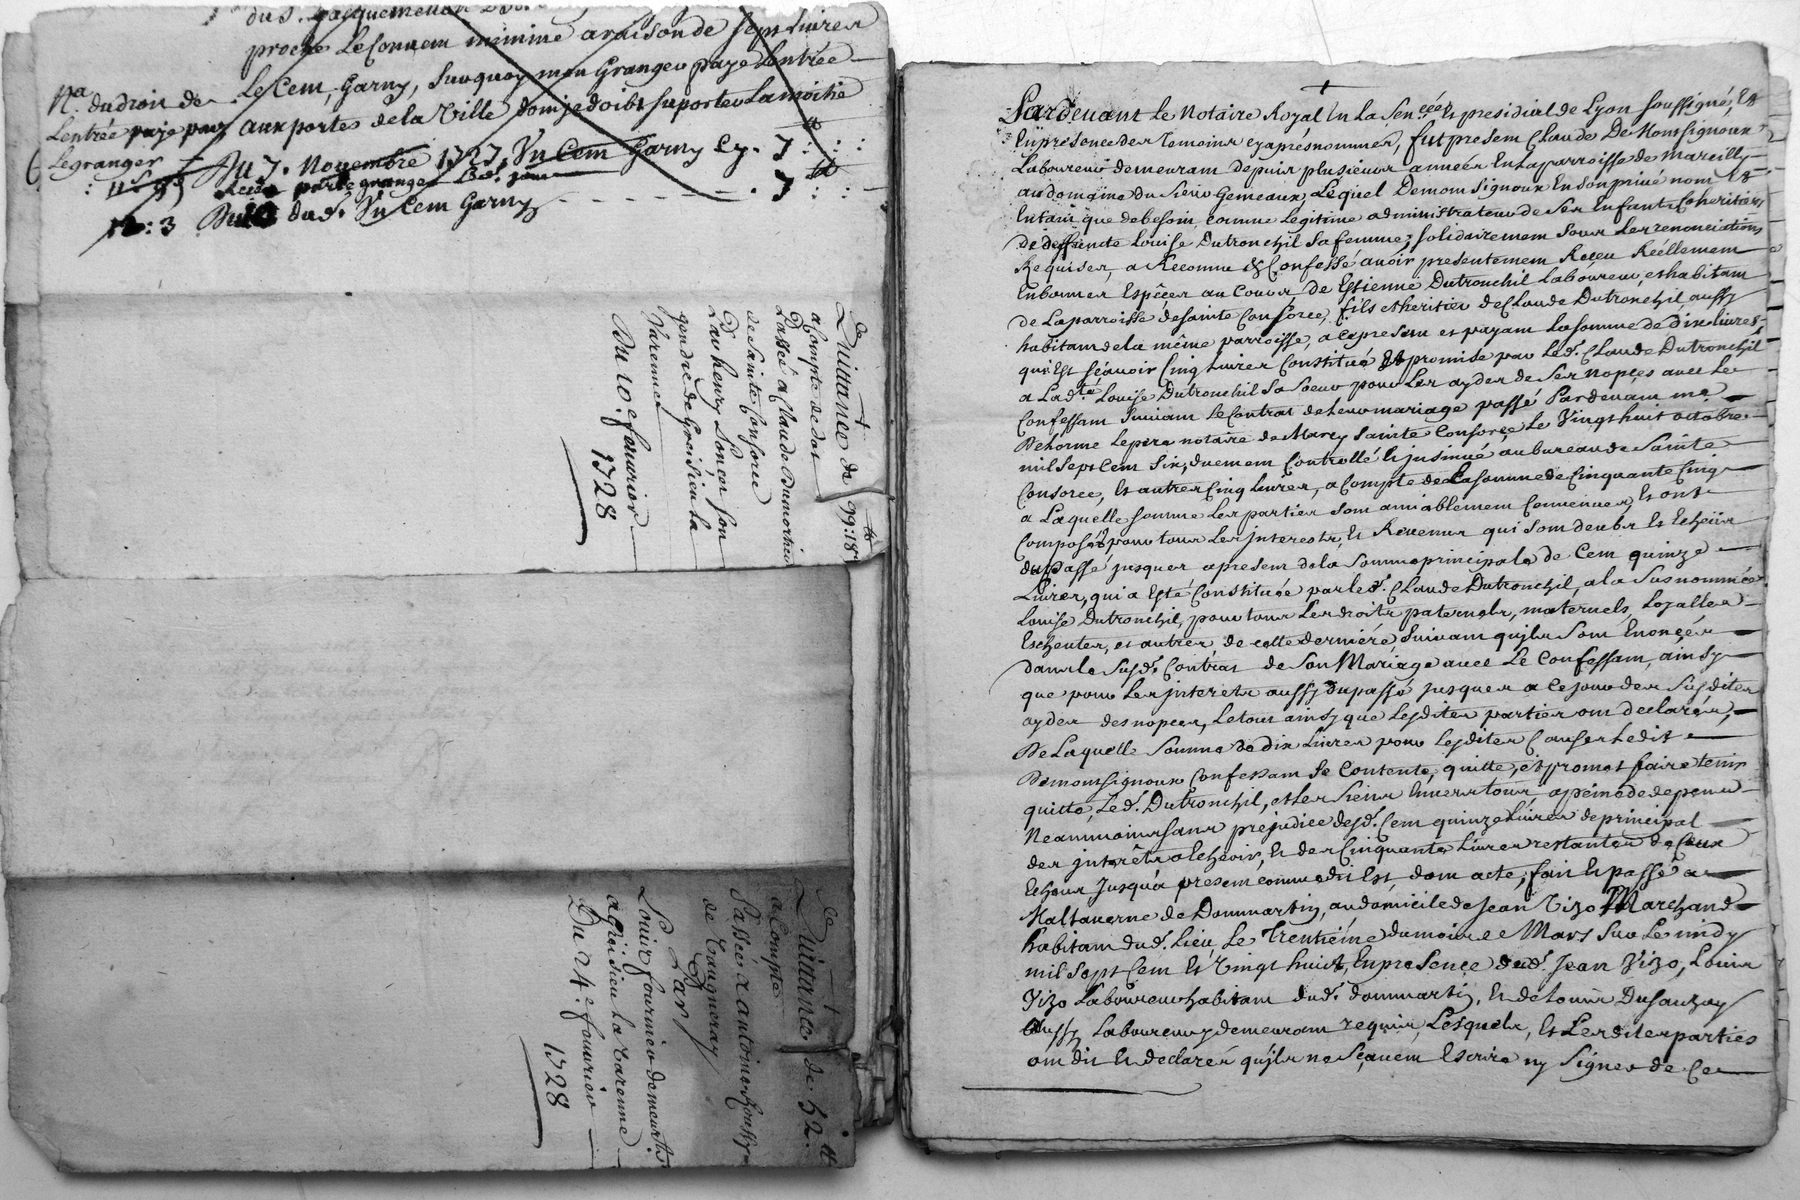 proche Le Couvem minime a raison de sept Livres
Le Cem, Garny, Surquoy mon Granger paye Lentrée
aux portes de la Ville dom je doibt suporter La moitié
Na. du droit de
Lentrée paye par
Le granger
Au 7. Novembre 1727. Un Cem Garny Cy. 7 : :
Un Cem Garny 7 : :
12 : 3
Quittance de 99:18
a Compte de dot
Passé a Claude Dumortier
de Sainte Consorce
Par henry Poncet son
gendre de Grezieu la
Varenne
Du 10e fevrier
1728
Quittance de 52
a Compte
Passée a antoine
de Vaugneray
Par
Louis fournier demeurt
a Grezieu la Varenne
Du 24e fevrier
1728
Pardevant Le Notaire Royal En La Sen.cée Et presidial de Lyon soussigné, Et
En presence des Temoins cy aprés nommés, fut presem Claude De Monsignoux
Laboureur demeuram depuis plusieurs années En La parroisse de Marcilly
au domaine du Sieur Gemeaux, Lequel Demomsignoux En son privé nom Et
Entam que de besoin, comme Legitime administrateur de Ses Enfants Coheritiers
de deffuncte Louise Dutronchil sa femme; solidairemem sous Les renonciations
Requises, a Reconnu & Confessé avoir presentemem Receu Réellemem
En bonnes Espéces au Cours, de Estienne Dutronchil Laboureur, et habitam
de La parroisse de sainte Consorce, fils et heritier de Claude Dutronchil, aussy
habitam de la même parroisse, a ce presem et payam La somme de dix livres,
qui Est sçavoir Cinq Livres Constitué Et promise par Led. Claude Dutronchil
a Ladte Louise Dutronchil sa soeur pour Les ayder de ses nopces avec Le
Confessam suivam Le Contrat de Leur mariage passé Pardevam me
Delorme Lepere notaire de Marcy sainte Consorce Le Vingt huit octobre
mil sept Cem six, duemem Controllé Et jnsinué au bureau de Sainte
Consorce, Et autres Cinq Livres, a Compte de La somme de Cinquante Cinq
a Laquelle somme Les parties som amiablemem Convenues, Et ont
Composé, pour tous Les jnterests, Et Revenus qui som deubs Et Echeus
du passé jusques apresem de la somme principale de Cem quinze
Livres, qui a Esté Constituée par led. Claude Dutronchil, a la susnommée
Louise Dutronchil, pour tous Les droits paternels, maternels, Loyalles
Escheutes, et autres, de cette derniéré, suivam qu'jls som Enoncés
dans le susd. Contrat de Son Mariage avec Le Confessam, ainsy
que pour Les jnterets aussy du passé jusques a ce jour des susdites
ayder des nopces, Le tout ainsy que Lesdites parties om declarés,
De Laquelle Somme de dix Livres pour Lesdites Causes Ledit
Demomsignoux Confessam se Contente, quitte, et promet faire tenir
quitte, Led. Dutronchil, et Les siens Envers tous, a peine de depens
Neanmoins sans préjudice desd. Cem quinze Livres de principal
des jnterêts a Echevoir, Et des Cinquante Livres restantes de Ceux
Echeus Jusqu'a presem comme dit Est, dom acte, fait Et passé a
Maltaverne de Dommartin, au domicile de Jean Vizo Marchand
habitam dud. Lieu, Le Trentiéme du mois de Mars sur Le midy
mil sept Cem Et Vingt huit, En presence dud. Jean Vizo, Louis
Vizo Laboureur habitam dud. dommartin, Et de Louis Dusauzay
aussy Laboureur y demeuram requis, Lesquels, Et Lesdites parties
om dit Et declarer qu'jls ne sçavem Escrire ny signer de Ce